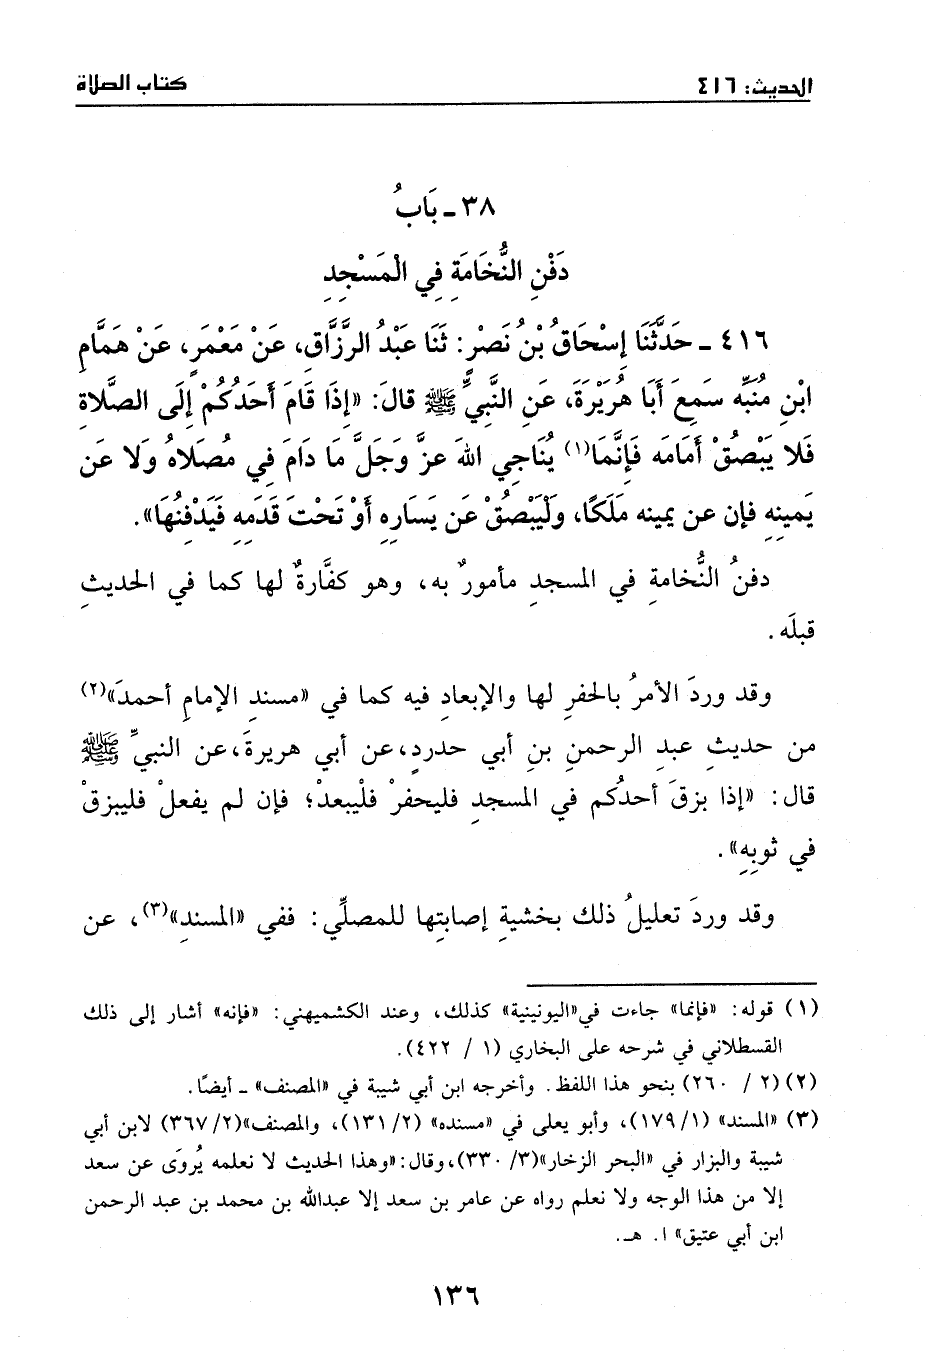 الحديث: ٤١٦ كتاب الصلاة
٣٨ ـ بَابُ
دَفْنِ النُّخَامَةِ فِي الْمَسْجِدِ
٤١٦ ـ حَدَّثَنَا إِسْحَاقُ بْنُ نَصْرٍ: ثَنَا عَبْدُ الرَّزَّاقِ، عَنْ مَعْمَرٍ، عَنْ هَمَّامِ
ابْنِ مُنَبِّه سَمِعَ أَبَا هُرَيْرَةَ، عَنِ النَّبِيِّ ﷺ قَالَ: «إِذَا قَامَ أَحَدُكُمْ إِلَى الصَّلاةِ
فَلا يَبْصُقْ أَمَامَه فَإِنَّمَا(١) يُنَاجِي اللهَ عزَّ وَجَلَّ مَا دَامَ فِي مُصَلاهُ وَلا عَن
يَمينِهِ فإن عن يمينه مَلَكًا، ولْيَبْصُقْ عَن يَسَارِهِ أوْ تَحْتَ قَدَمِهِ فَيَدْفِنُهَا».
دفنُ النُّخامةِ في المسجدِ مأمورٌ به، وهو كفَّارةٌ لها كما في الحديثِ
قبلَه .
وقد وردَ الأمرُ بالحفرِ لها والإبعادِ فيه كما في «مسندِ الإمامِ أحمدَ»(٢)
من حديثِ عبدِ الرحمنِ بنِ أبي حدردٍ،عن أبي هريرةَ،عن النبيِّ ﷺ
قال: «إذا بزقَ أحدُكم في المسجدِ فليحفرْ فلْيبعدْ؛ فإن لم يفعلْ فليبزقْ
في ثوبِهِ» .
وقد وردَ تعليلُ ذلك بخشيةِ إصابتِها للمصلِّي: ففي «المسندِ»(٣)، عن
(١) قوله: «فإنما» جاءت في«اليونينية» كذلك، وعند الكشميهني: «فإنه» أشار إلى ذلك
القسطلاني في شرحه على البخاري (١ / ٤٢٢).
(٢)(٢ / ٢٦٠) بنحو هذا اللفظ. وأخرجه ابن أبي شيبة في «المصنف» ـ أيضًا.
(٣) «المسند» (١/ ١٧٩)، وأبو يعلى في «مسنده» (٢/ ١٣١)، والمصنف»(٢/ ٣٦٧) لابن أبي
شيبة والبزار في «البحر الزخار»(٣/ ٣٣٠)،وقال:«وهذا الحديث لا نعلمه يُروَى عن سعد
إلا من هذا الوجه ولا نعلم رواه عن عامر بن سعد إلا عبدالله بن محمد بن عبد الرحمن
ابن أبي عتيق» ا. هـ.
١٣٦